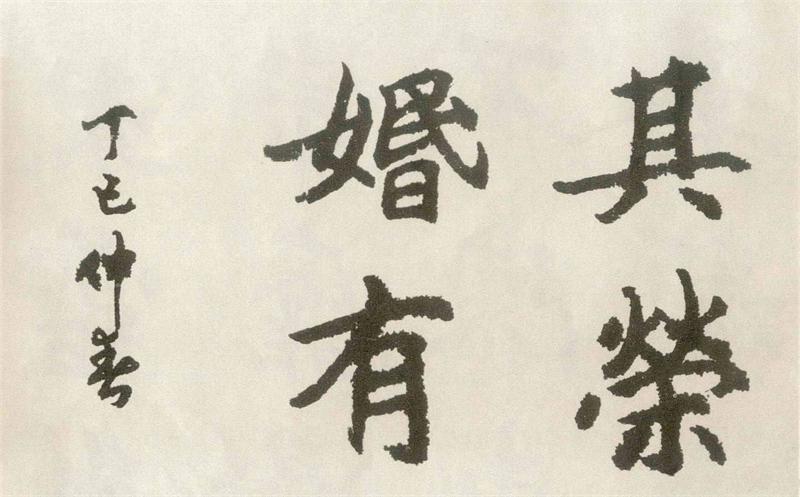 其榮
婚有
丁巳仲春